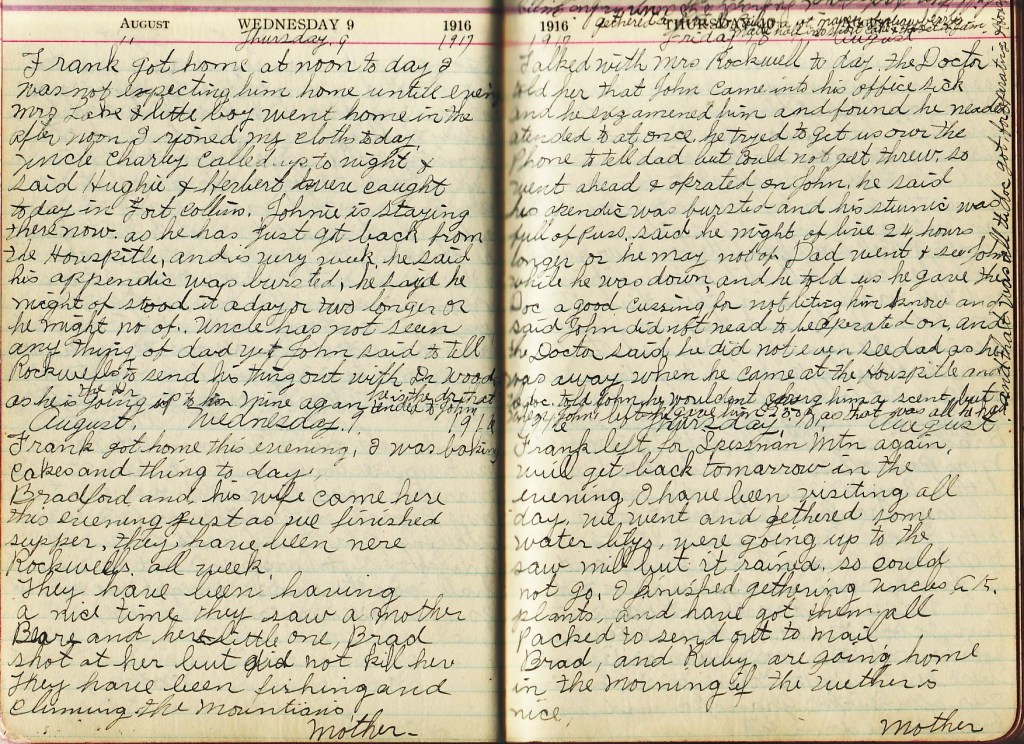 August WEDNESDAY 9 1916
11 Thursday. 9 1917
Frank got home at noon to day I
was not expecting him home until even
Mrs Love & little boy went home in the
after noon I rioned my cloths today.
Uncle Charly Called us to night &
said Hughie & Herbert were caught
today in Fort Collins. Johnie is staying
there now. as he has just got back from
the Houspitle, and is very week, he said
his appendis was bursted, he said he
might of stood it a day or two longer or
he might no of. Uncle has not seen
any thing of dad yet, John said to tell
Rockwells to send his thing out with Dr Woods
as he is going up to mine again
August. Wednesday. 9 1916
Frank got home this evening, I was baking
Cakes and thing to day,
Bradford and his wife came here
this evening just as we finished
supper, they have been nere
Rockwells all week.
They have been having
a nice time they saw a Mother
Beare and her little one, Brad
shot at her but did not kill her
They have been fishing and
climing the Mountians,
Mother-
1916 THURSDAY 10
1917 Friday August
Talked with Mrs Rockwell to day. the Doctor
told her that John came into his office sick
and he exzamened him and found he needed
atended to at once, he tryed to get us over the
Phone to tell dad but could not get threw, so
went ahead & oprated on John, he said
his apendic was bursted and his stumic was
full of Puss. said he might of live 24 hours
longer or he may not of. Dad went & see John
while he was down, and he told us he gave the
Doc a good Cussing for not liting him know and
said John did not nead to be operated on, and
the Doctor said, he did not even see dad as he
was away when he came at the Houspitle and
Doc. told John he wouldent charg him a sent, but
as that was all he had
Thursday 10. August
Frank left for Spessman Mtn again,
will get back tomarrow in the
evening, I have been visiting all
day, we went and gethered some
water lilys, were going up to the
saw mill but it rained, so could
not go, I finished gethering Uncas G. 15.
plants, and have got them all
Packed to send out to mail
Brad, and Ruby, are going home
in the morning if the wether is
nice,
Mother